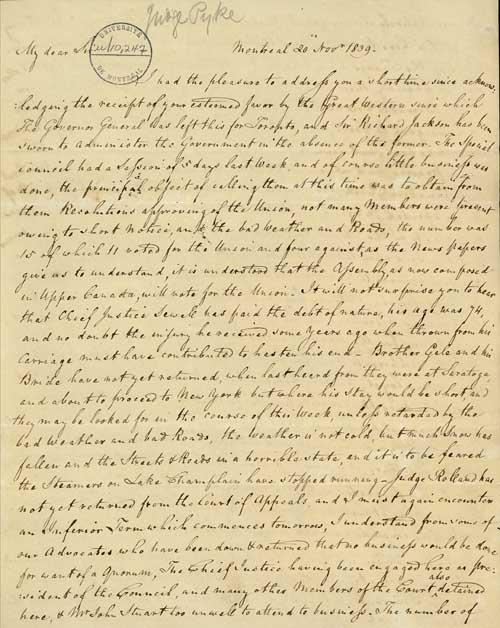 Judge Pyke
UNIVERSITÉ
DE MONTRÉAL
My dear Sir Montreal 20th Novr 1839.
I had the pleasure to address you a short time since acknow
:ledging the receipt of your esteemed favor by the Great Western since which
The Governor General has left this for Toronto, and Sir Richard Jackson has been
sworn to administer the Government in the absence of the former. The Special
Council had a Session of 5 days last Week, and of course little business was
done, the principal object of calling them at this time was to obtain from
them Resolutions approving of the Union, not many Members were present
owing to short Notice, and the bad Weather and Roads, the number was
15 of which 11 voted for the Union and four against, as the News papers
give us to understand, it is understood that the Assembly, as now composed
in Upper Canada, will vote for the Union – It will not surprise you to hear
that Chief Justice Sewell has paid the debt of nature, his age was 74,
and no doubt the injury he received some Years ago when thrown from his
Carriage must have contributed to hasten his end – Brother Gale and his
Bride have not yet returned, when last heard from they were at Saratoga,
and about to proceed to New York but where his Stay would be short, and
they may be looked for in the course of this Week, unless retarded by the
bad Weather and bad Roads, the Weather is not cold, but much Snow has
fallen and the Streets & Roads in a horrible state, and it is to be feared
the Steamers on Lake Champlain have stopped running – Judge Rolland has
not yet returned from the Court of Appeals, and I must again encounter
an Inferior Term which commences tomorrow, I understand from some of
our Advocates who have been down & returned that no business would be done
for want of a Quorum, The Chief Justice having been engaged here as pre:
:sident of the Council, and many other Members of the Court, also detained
here, & Mr John Stuart too unwell to attend to business – The number of